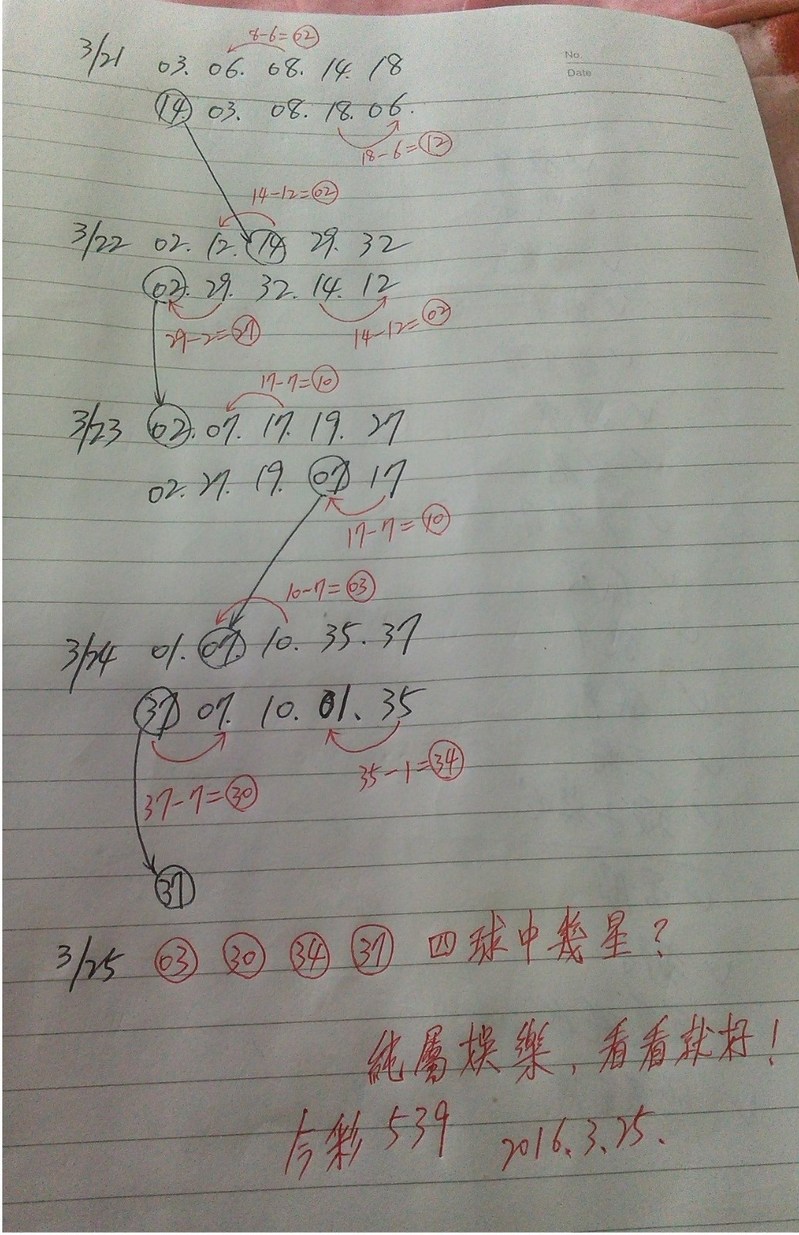 8-6=02
No.
3/21 03. 06. 08. 14. 18
Date
14 03. 08. 18. 06.
18-6=12
14-12=02
3/22 02. 12. 14 29. 32
02. 29. 32. 14. 12
29-2=27
14-12=02
17-7=10
3/23 02. 07. 17. 19. 27
02. 27. 19. 07 17
17-7=10
10-7=03
3/24 01. 07. 10. 35. 37
37 07. 10. 01. 35
37-7=30
35-1=34
37
3/25 03 30 34 37 四球中幾星?
純屬娛樂,看看就好!
今彩539 2016.3.25.